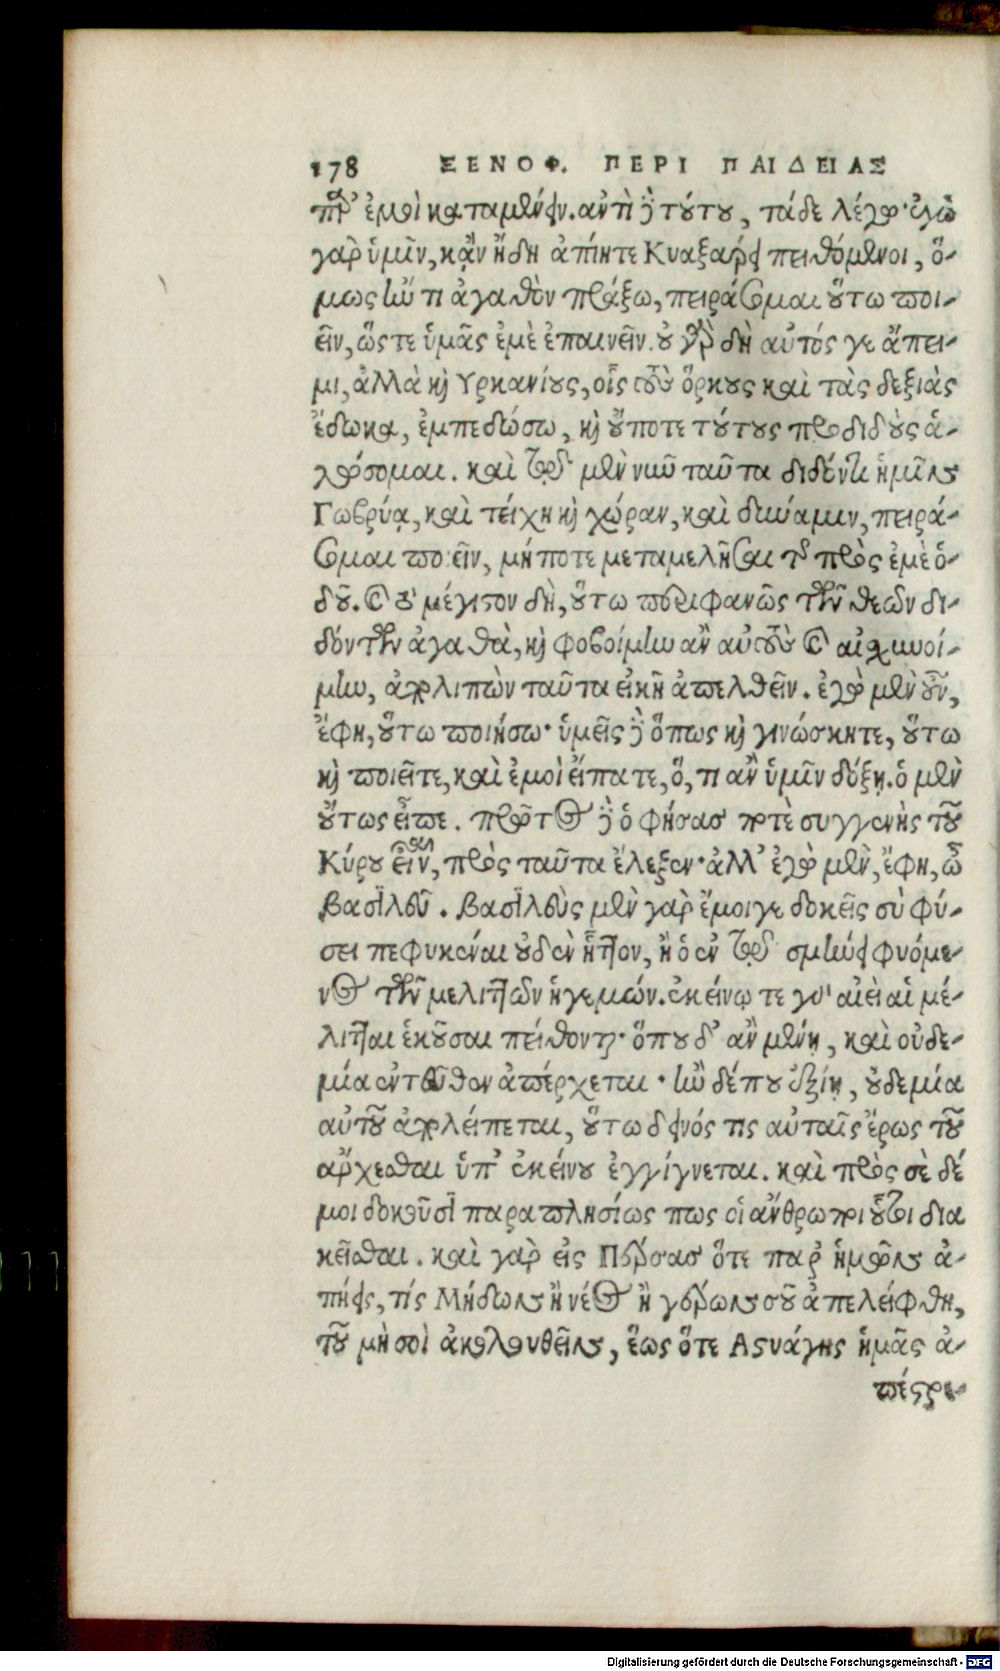 178 ΞΕΝΟΦ. ΠΕΡΙ ΠΑΙΔΕΙΑΣ
παρ' ἐμοὶ καταμένειν. ἀντὶ δὲ τούτου, τάδε λέγω· ἐγὼ
γὰρ ὑμῖν, κᾂν ἤδη ἀπίητε Κυαξάρει πειθόμενοι, ὅ-
μως ἢν τι ἀγαθὸν πράξω, πειράσομαι οὕτω ποι-
εῖν, ὥς τε ὑμᾶς ἐμὲ ἐπαινεῖν. οὐ γὰρ δὴ αὐτός γε ἄπει-
μι, ἀλλὰ καὶ Υρκανίους, οἷς τοὺς ὅρκους καὶ τὰς δεξιὰς
ἔδωκα, ἐμπεδώσω, καὶ οὔποτε τούτους προδιδοὺς ἁ-
λώσομαι. καὶ τῷ μὲν νῦν ταῦτα διδόντι ἡμῖν
Γωβρύᾳ, καὶ τείχη καὶ χώραν, καὶ δύναμιν, πειρά-
σομαι ποιεῖν, μήποτε μεταμελῆσαι τῆς πρὸς ἐμὲ ὁ-
δοῦ. καὶ τὸ μέγιστον δὴ, οὕτω περιφανῶς τῶν θεῶν δι-
δόντων ἀγαθὰ, καὶ φοβοίμην ἂν αὐτοὺς καὶ αἰσχυνοί-
μην, ἀπολιπὼν ταῦτα εἰκῆ ἀπελθεῖν. ἐγὼ μὲν οὖν,
ἔφη, οὕτω ποιήσω· ὑμεῖς δὲ ὅπως καὶ γινώσκητε, οὕτω
καὶ ποιεῖτε, καὶ ἐμοὶ εἴπατε, ὅ, τι ἂν ὑμῖν δόξῃ. ὁ μὲν
οὕτως εἶπε. πρῶτος δὲ ὁ φήσας ποτὲ συγγενὴς τοῦ
Κύρου εἶναι, πρὸς ταῦτα ἔλεξεν· ἀλλ' ἐγὼ μὲν, ἔφη, ὦ
βασιλεῦ. βασιλεὺς μὲν γὰρ ἔμοιγε δοκεῖς σὺ φύ-
σει πεφυκέναι οὐδὲν ἧττον, ἢ ὁ ἐν τῷ σμήνει φυόμε-
νος τῶν μελιττῶν ἡγεμών. ἐκείνῳ τε γὰρ αἰεὶ αἱ μέ-
λιτται ἑκοῦσαι πείθονται· ὅπου δ' ἂν μένῃ, καὶ οὐδε-
μία ἐντεῦθεν ἀπέρχεται· ἢν δέ που ἐξίῃ, οὐδεμία
αὐτοῦ ἀπολείπεται, οὕτω δεινός τις αὐταῖς ἔρως τοῦ
ἄρχεσθαι ὑπ' ἐκείνου ἐγγίγνεται. καὶ πρὸς σὲ δέ
μοι δοκοῦσι παραπλησίως πως οἱ ἄνθρωποι οὗτοι δια
κεῖσθαι. καὶ γὰρ εἰς Πέρσας ὅτε παρ' ἡμῶν ἀ-
πῄεις, τίς Μήδων ἢ νέος ἢ γέρων σοῦ ἀπελείφθη,
τοῦ μὴ σοὶ ἀκολουθεῖν, ἕως ὅτε Αστυάγης ἡμᾶς ἀ-
πέστρε-
Digitalisierung gefördert durch die Deutsche Forschungsgemeinschaft - DFG